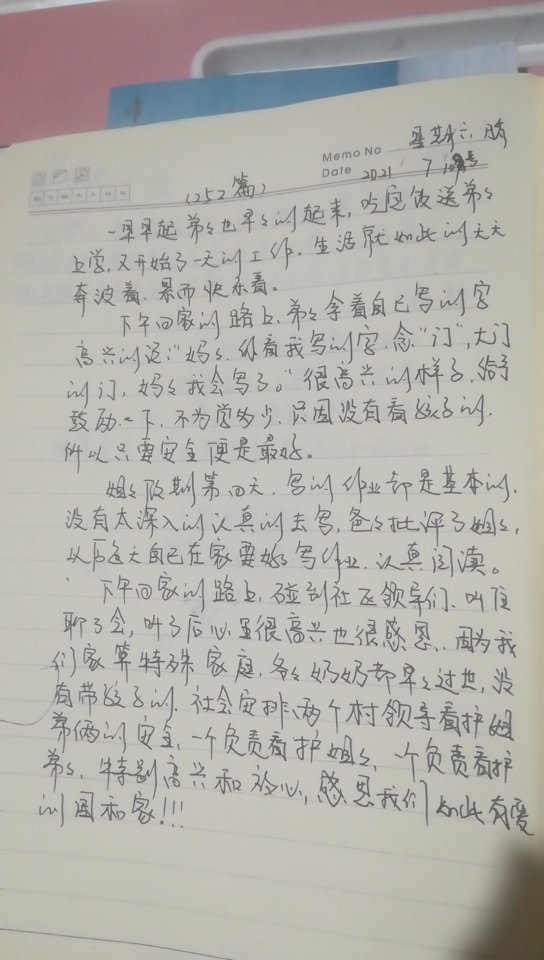 星期六. 晴
Memo No.
Date 2021 7 10号
(252篇)
一早早起弟々也早々的起来, 吃完饭送弟々
上学, 又开始了一天的工作. 生活就如此的天天
奔波着. 累而快乐着。
下午回家的路上, 弟々拿着自己写的字
高兴的说:"妈々. 你看我写的字. 念"门", 大门
的门, 妈々我会写了。"很高兴的样子, 给予
鼓励一下, 不为学为少. 只因没有看孩子的,
所以只要安全便是最好。
姐々放期第四天. 写的作业都是基本的.
没有太深入的认真的去写, 爸々批评了姐々,
以后每天自己在家要好々写作业. 认真阅读。
下午回家的路上, 碰到社区领导们. 叫住
聊了会, 听了后心里很高兴也很感恩.. 因为我
们家算特殊家庭. 爷々奶奶都早々过世, 没
有带孩子的. 社会安排、两个村领导看护姐
弟俩的安全, 一个负责看护姐々, 一个负责看护
弟々, 特别高兴和放心, 感恩我们如此有爱
的国和家!!!